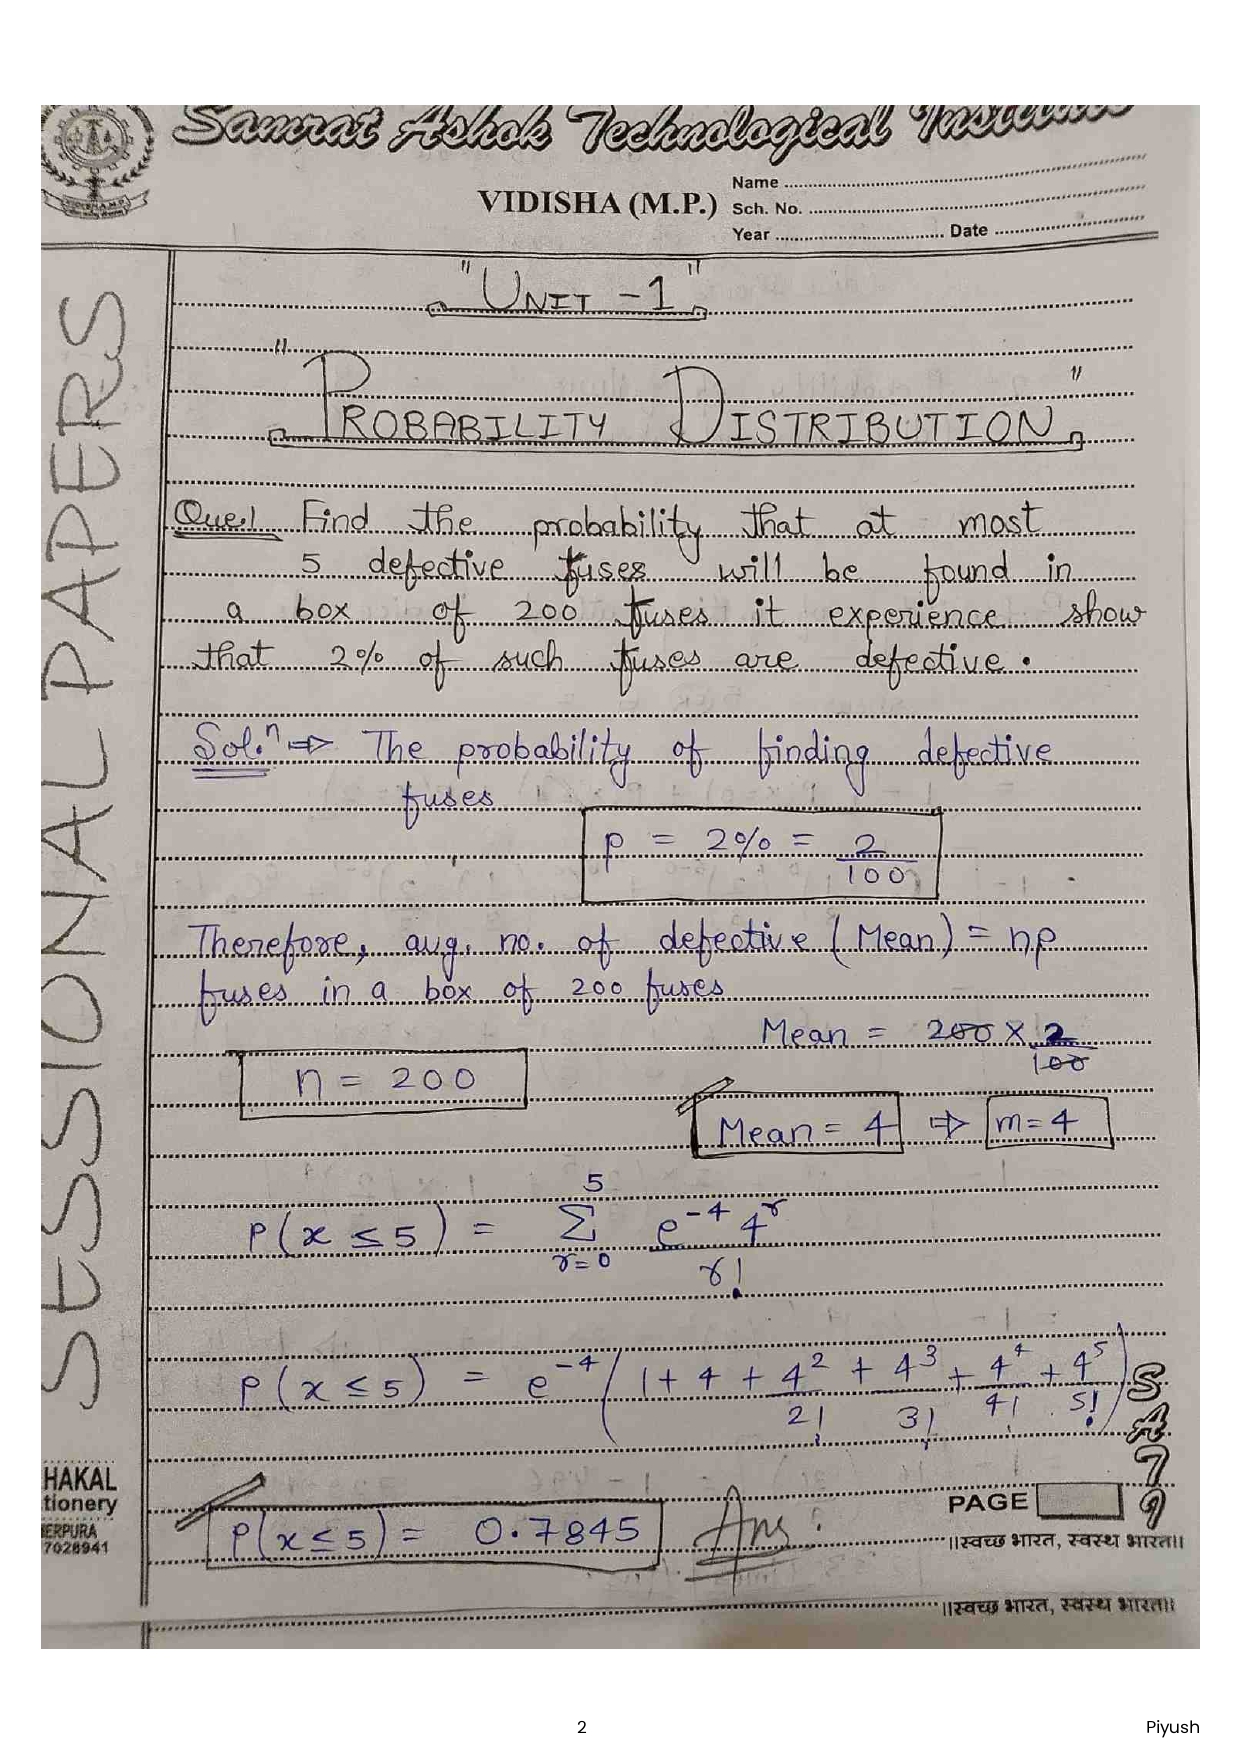 Samrat Ashok Technological Institute
VIDISHA (M.P.)
Name
Sch. No.
Year Date
SESSIONAL PAPERS
"UNIT-1"
"PROBABILITY DISTRIBUTION"
Que.1 Find the probability that at most
5 defective fuses will be found in
a box of 200 fuses it experience show
that 2% of such fuses are defective.
Sol.n ⇒ The probability of finding defective
fuses
p = 2% = 2/100
Therefore, aug. no. of defective (Mean) = np
fuses in a box of 200 fuses
Mean = 200 × 2/100
n = 200
Mean = 4 ⇒ m=4
P(x ≤ 5) = 5 Σ r=0 e^-4 4^r / r!
P(x ≤ 5) = e^-4 (1 + 4 + 4^2/2! + 4^3/3! + 4^4/4! + 4^5/5!)
P(x ≤ 5) = 0.7845 Ans.
SATI
HAKAL
tionery
ERPURA
7028941
PAGE
॥स्वच्छ भारत, स्वस्थ भारत॥
॥स्वच्छ भारत, स्वस्थ भारत॥
2
Piyush